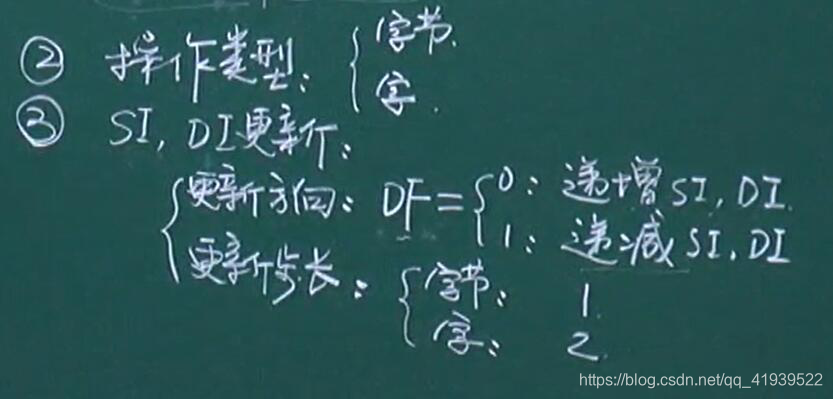 ② 操作类型: { 字节.
字.
③ SI, DI更新:
{ 更新方向: DF = { 0: 递增SI, DI.
1: 递减SI, DI
更新步长: { 字节: 1.
字: 2.
https://blog.csdn.net/qq_41939522